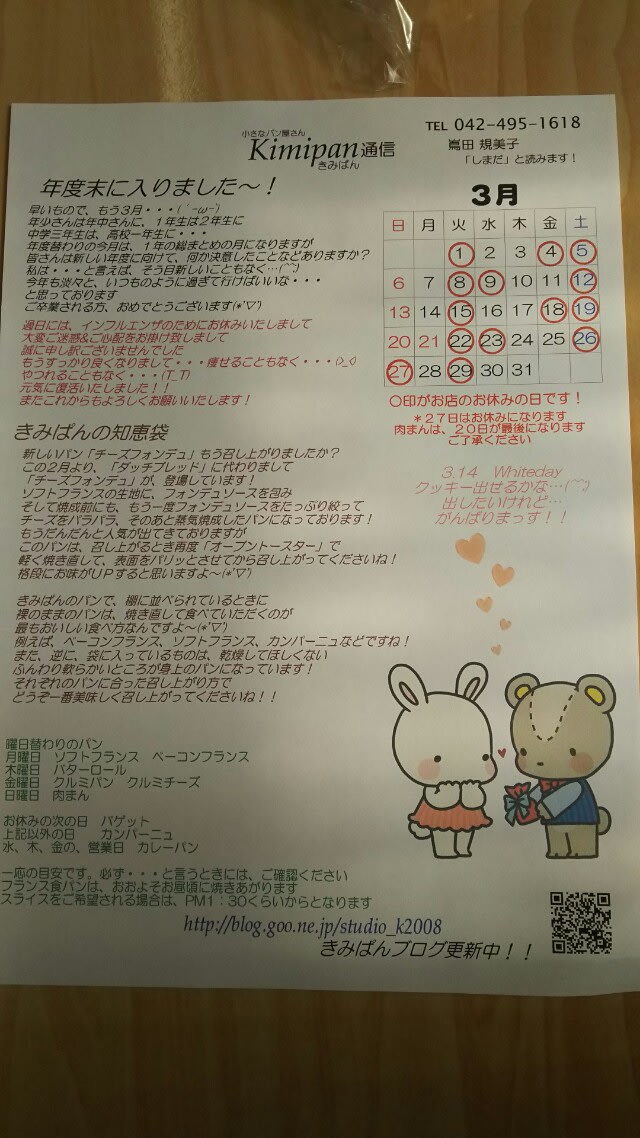 小さなパン屋さん
Kimipan通信
きみぱん
TEL 042-495-1618
嶌田 規美子
「しまだ」と読みます！
年度末に入りました～！
早いもので、もう３月・・・(´-ω-`)
年少さんは年中さんに、１年生は２年生に
中学三年生は、高校一年生に・・・
年度替わりの今月は、１年の総まとめの月になりますが
皆さんは新しい年度に向けて、何か決意したことなどありますか？
私は・・・と言えば、そう目新しいこともなく…(^^;)
今年も淡々と、いつものように過ぎて行けばいいな・・・
と思っております
ご卒業される方、おめでとうございます(*'▽')
過日には、インフルエンザのためにお休みいたしまして
大変ご迷惑&ご心配をお掛け致しまして
誠に申し訳ございませんでした
もうすっかり良くなりまして・・・痩せることもなく・・・(>_<)
やつれることもなく・・・(T_T)
元気に復活いたしました！！
またこれからもよろしくお願いいたします！
3月
日 月 火 水 木 金 土
1 2 3 4 5
6 7 8 9 10 11 12
13 14 15 16 17 18 19
20 21 22 23 24 25 26
27 28 29 30 31
〇印がお店のお休みの日です！
＊２７日はお休みになります
肉まんは、２０日が最後になります
ご了承ください
3.14 Whiteday
クッキー出せるかな…(^^;)
出したいけれど…
がんばりまっす！！
きみぱんの知恵袋
新しいパン「チーズフォンデュ」もう召し上がりましたか？
この２月より、「ダッチブレッド」に代わりまして
「チーズフォンデュ」が、登場しています！
ソフトフランスの生地に、フォンデュソースを包み
そして焼成前にも、もう一度フォンデュソースをたっぷり絞って
チーズをパラパラ、そのあと蒸気焼成したパンになっております！
もうだんだんと人気が出てきておりますが
このパンは、召し上がるとき再度「オーブントースター」で
軽く焼き直して、表面をパリッとさせてから召し上がってくださいね！
格段にお味がＵＰすると思いますよ～(*'▽')
きみぱんのパンで、棚に並べられているときに
裸のままのパンは、焼き直して食べていただくのが
最もおいしい食べ方なんですよ～(*'▽')
例えば、ベーコンフランス、ソフトフランス、カンパーニュなどですね！
また、逆に、袋に入っているものは、乾燥してほしくない
ふんわり軟らかいところが身上のパンになっています！
それぞれのパンに合った召し上がり方で
どうぞ一番美味しく召し上がってくださいね！！
曜日替わりのパン
月曜日 ソフトフランス ベーコンフランス
木曜日 バターロール
金曜日 クルミパン クルミチーズ
日曜日 肉まん
お休みの次の日 バゲット
上記以外の日 カンパーニュ
水、木、金の、営業日 カレーパン
一応の目安です。必ず・・・と言うときには、ご確認ください
フランス食パンは、おおよそお昼頃に焼きあがります
スライスをご希望される場合は、PM1：30くらいからとなります
http://blog.goo.ne.jp/studio_k2008
きみぱんブログ更新中！！